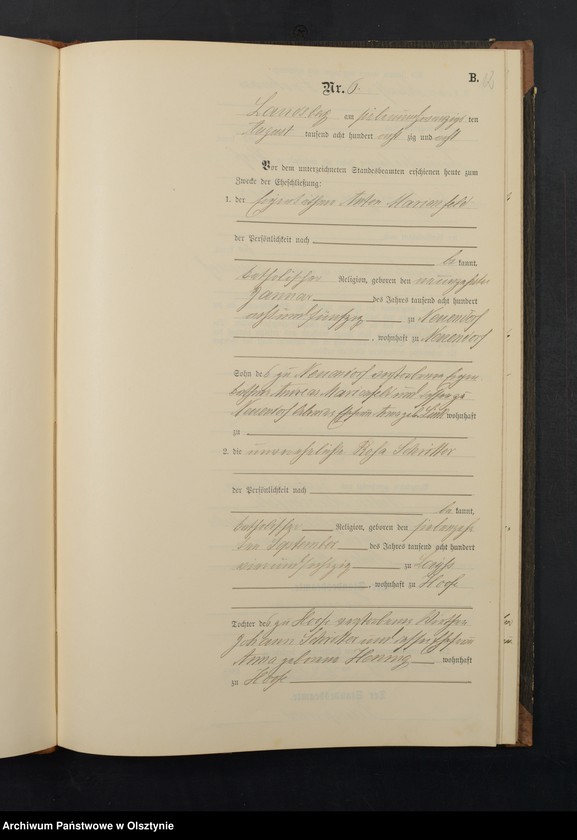 B.
Nr. 6.
Landsberg am siebenundzwanzigsten
August tausend acht hundert acht zig und acht
Vor dem unterzeichneten Standesbeamten erschienen heute zum
Zwecke der Eheschließung:
1. der Eigenkäthner Anton Marienfeld
der Persönlichkeit nach
be kannt,
katholischer Religion, geboren den neunzehnten
Januar des Jahres tausend acht hundert
achtundfünfzig zu Neuendorf
, wohnhaft zu Neuendorf
Sohn des zu Neuendorf verstorbenen Eigen-
käthner Andreas Marienfeld und
Neuendorf wohnhaft
zu
2. die unverehelichte Rosa Schritter
der Persönlichkeit nach
be kannt,
katholischer Religion, geboren den siebenzehn-
ten September des Jahres tausend acht hundert
vierundsechzig zu
, wohnhaft zu Hoofe
Tochter des zu Hoofe verstorbenen Wirthen
Johann Schritter und dessen Ehefrau
Anna geborene Hennig wohnhaft
zu Hoofe
Archiwum Państwowe w Olsztynie